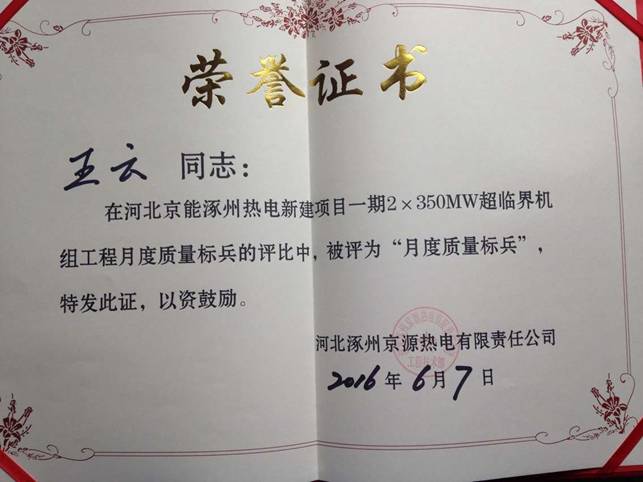 荣誉证书
王云 同志：
在河北京能涿州热电新建项目一期2×350MW超临界机
组工程月度质量标兵的评比中，被评为“月度质量标兵”，
特发此证，以资鼓励。
河北涿州京源热电有限责任公司
2016年6月7日